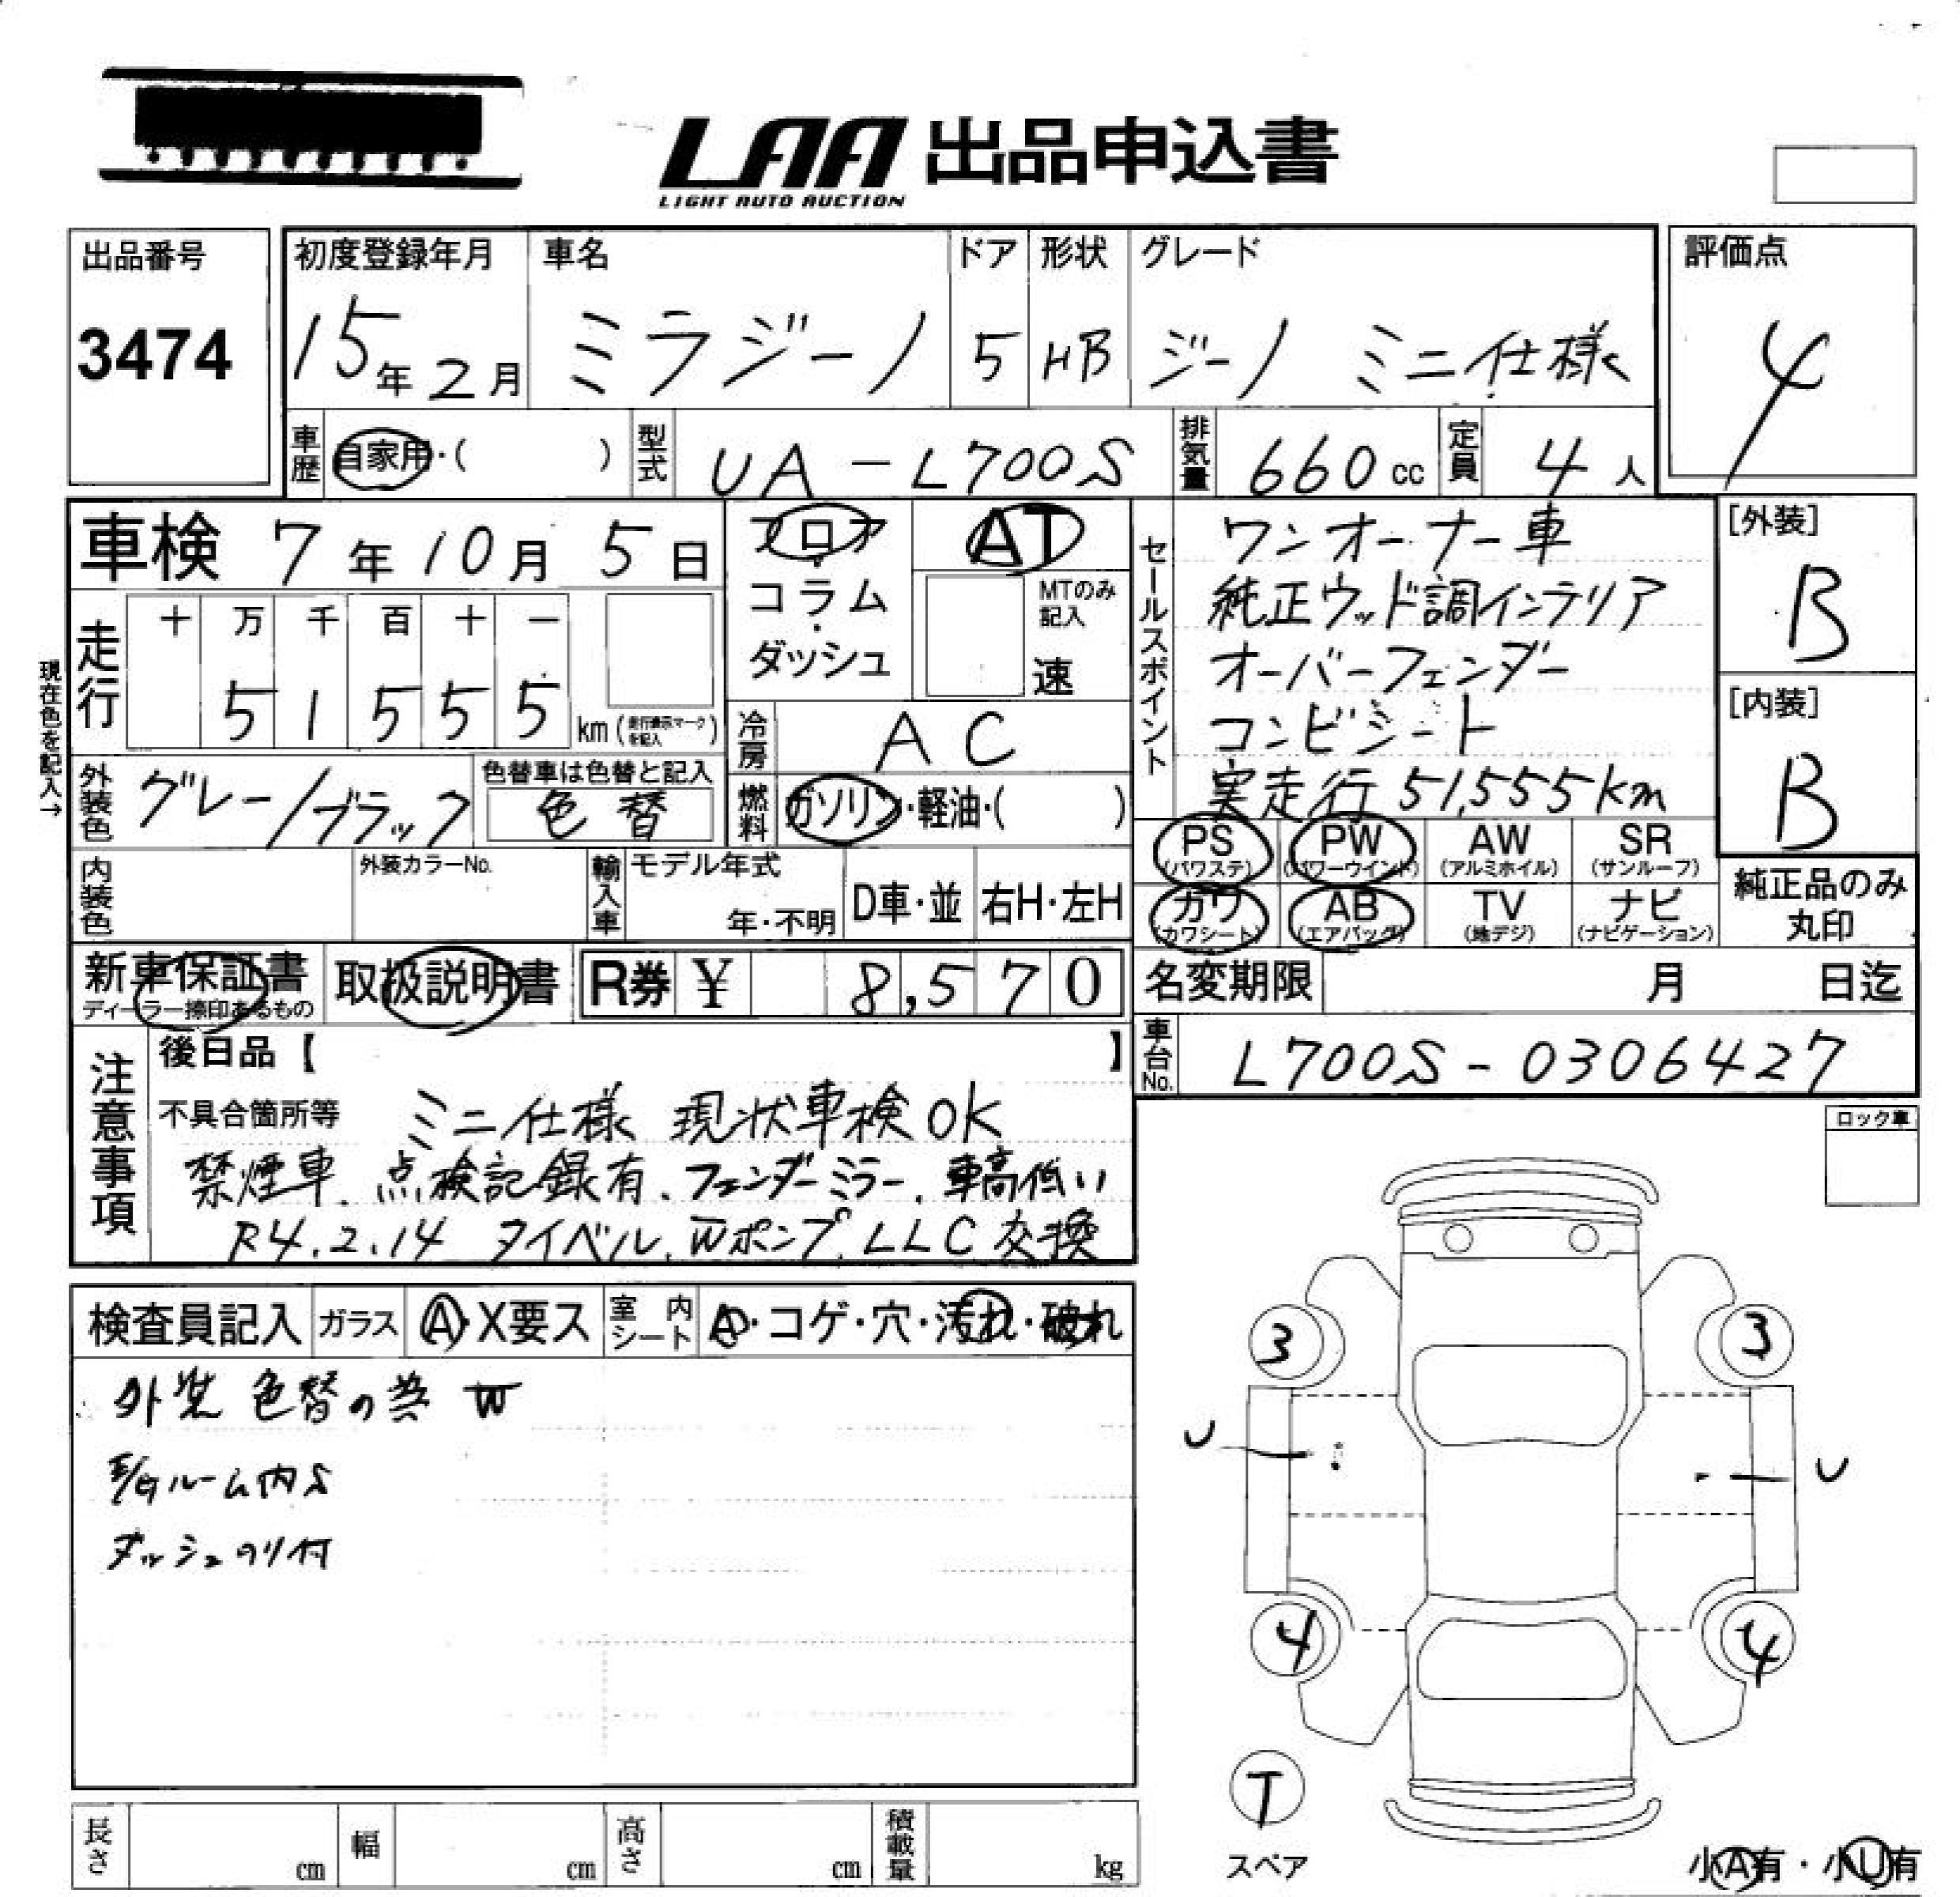 LAA 出品申込書
LIGHT AUTO AUCTION
出品番号
3474
初度登録年月
15年2月
車名
ミラジーノ
ドア
5
形状
HB
グレード
ジーノ ミニ仕様
評価点
4
車歴
自家用・( )
型式
UA-L700S
排気量
660cc
定員
4人
車検 7年10月5日
フロア・コラム・ダッシュ
AT
MTのみ記入
速
セールスポイント
ワンオーナー車
純正ウッド調インテリア
オーバーフェンダー
コンビシート
実走行 51,555km
[外装]
B
[内装]
B
現在色を記入→
走行
十 万 千 百 十 一
5 1 5 5 5
km(走行表示マークを記入)
冷房
AC
外装色
グレー/ブラック
色替車は色替と記入
色替
燃料
ガソリン・軽油・( )
PS
(パワステ)
PW
(パワーウインド)
AW
(アルミホイル)
SR
(サンルーフ)
カワ
(カワシート)
AB
(エアバッグ)
TV
(地デジ)
ナビ
(ナビゲーション)
純正品のみ
丸印
内装色
外装カラーNo.
輸入車
モデル年式
年・不明
D車・並
右H・左H
新車保証書
ディーラー捺印あるもの
取扱説明書
R券 ¥ 8,570
名変期限 月 日迄
車台No.
L700S-0306427
注意事項
後日品【 】
不具合箇所等
ミニ仕様 現状車検OK
禁煙車、点検記録有、フェンダーミラー、車高低い
R4.2.14 タイベル、Wポンプ、LLC交換
ロック車
検査員記入
ガラス
A・X要ス
室内シート
・コゲ・穴・汚れ・破れ
外装 色替の為 W
ルーム内S
ダッシュのり付
3
3
U
U
4
4
T
スペア
小A有・小U有
長さ
cm
幅
cm
高さ
cm
積載量
kg